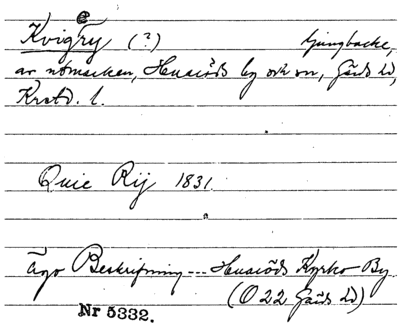 Kvigery (?) ljungbacke,
av utmarken, Husaröds by och sn, Gärds hd,
Krstd. l.
Quie Rij 1831.
Ägo Beskrifning --- Husaröds Kyrko By
(O 22 Gärds hd)
Nr 5332.